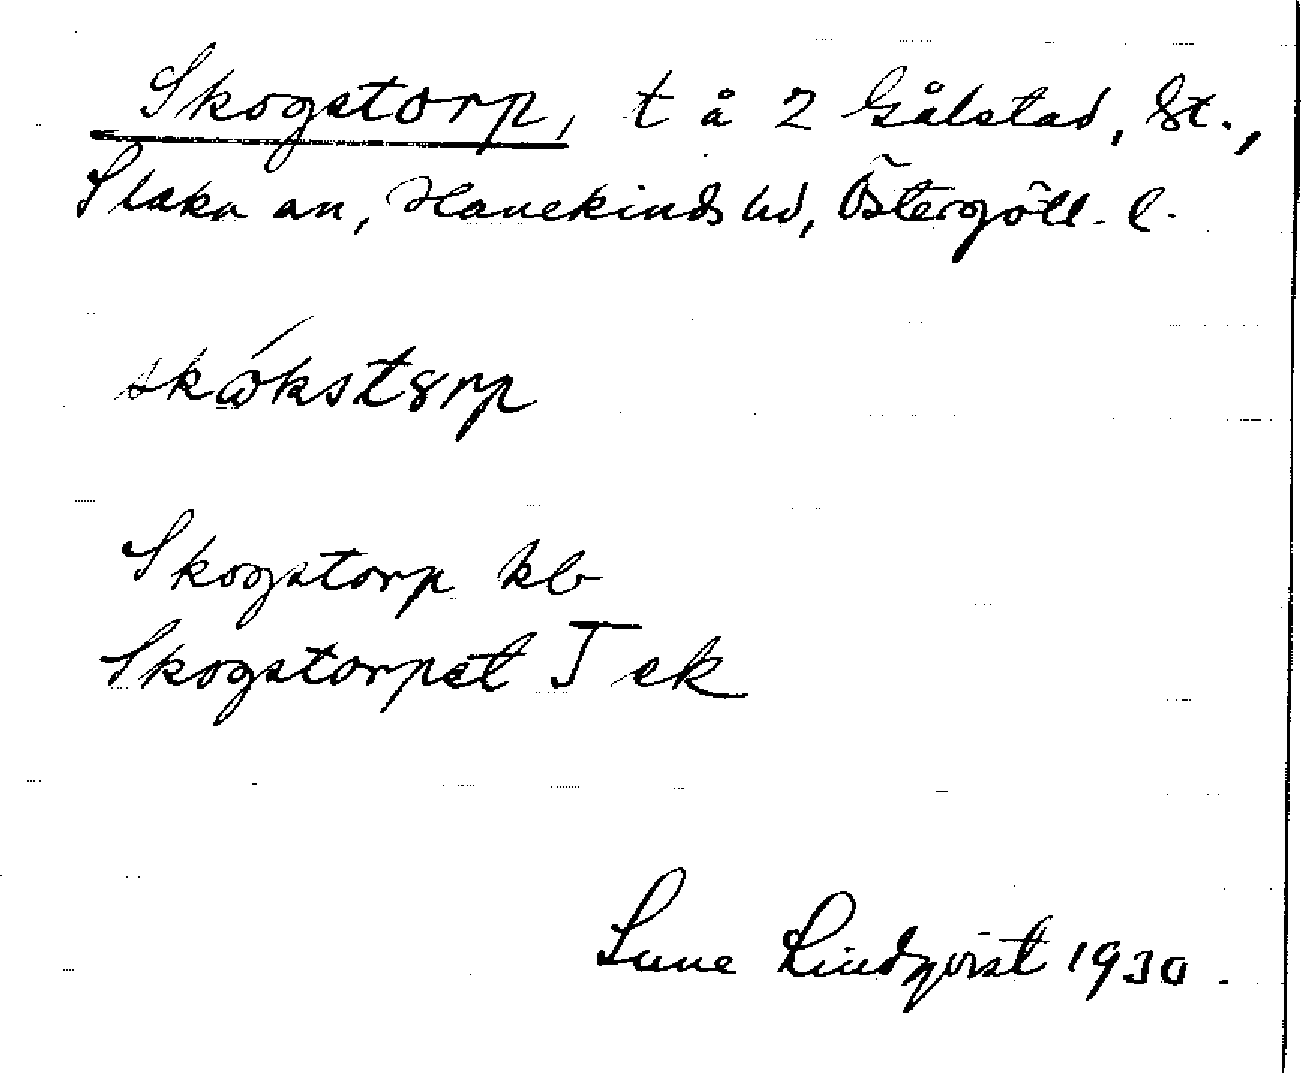 Skogstorp, t å 2 Gålstad, St.,
Slaka sn, Hanekinds hd, Östergötl. l.
skó̱kstɞrp
Skogstorp kb
Skogstorpet J ek
Sune Lindqvist 1930.